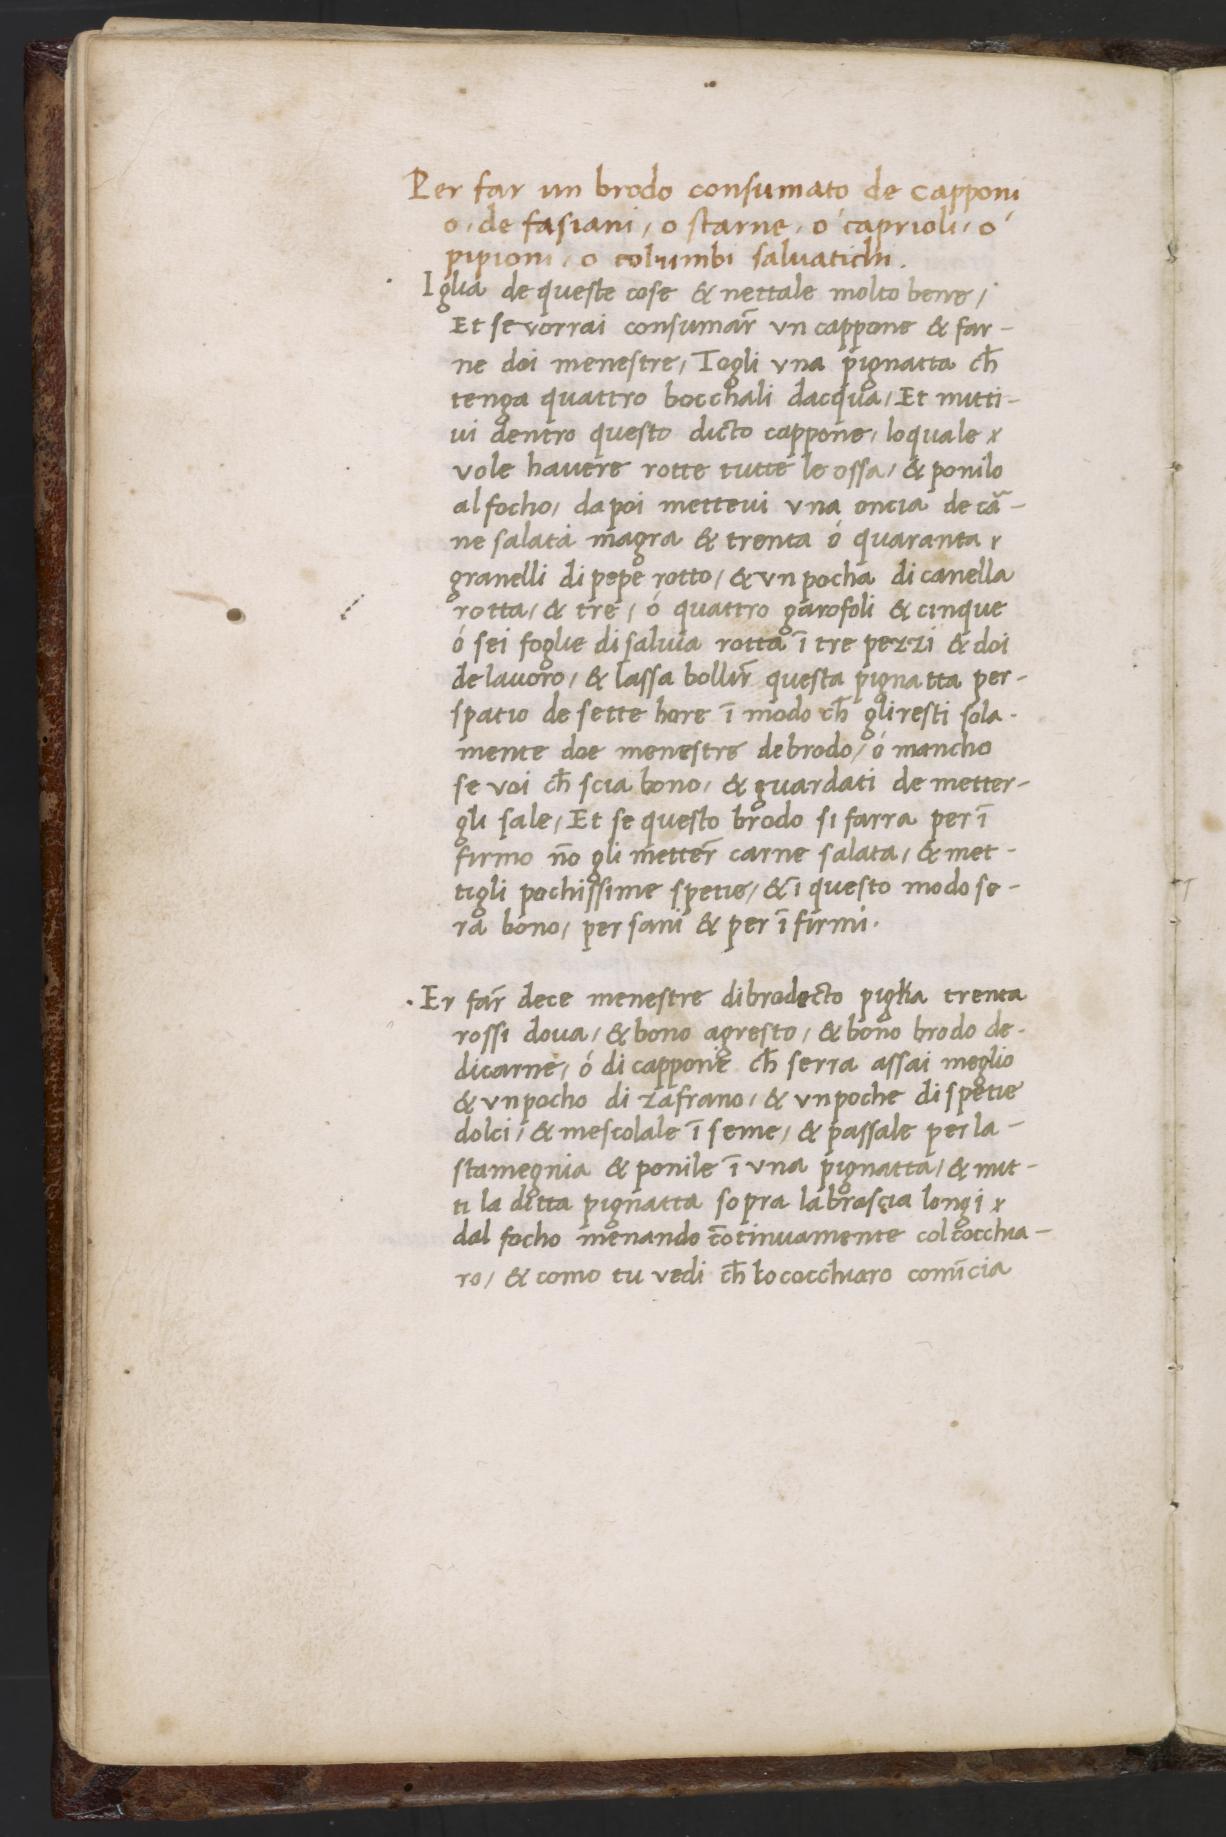 Per far un brodo consumato de capponi
o, de fasiani, o starne, o caprioli, ó
pipioni, o columbi salvatichi.
Iglia de queste cose & nettale molto bene,
Et se vorrai consumar̄ vn cappone & far-
ne doi menestre, Togli vna pignatta ch̄
tenga quattro bocchali dacqua, Et mitti-
ui dentro questo dicto cappone, loquale
vole havere rotte tutte le ossa, & ponilo
al focho, da poi mettevi vna oncia de cā-
ne salata magra & trenta ó quaranta
granelli di pepe rotto, & vn pocha di canella
rotta, & tre, ó quattro garofoli & cinque
ó sei foglie di salvia rotta ī tre pezzi & doi
de lauoro, & lassa bollir̄ questa pignatta per-
spatio de sette hore ī modo ch̄ gli resti sola-
mente doe menestre de brodo, ó mancho
se voi ch̄ scia bono, & guardati de metter-
gli sale, Et se questo brodo si farra per ī
firmo nō gli metter̄ carne salata, & met-
tigli pochissime spetie, & ī questo modo se-
ra bono, per sani & per ī firmi.
Er far̄ dece menestre di brodecto piglia trenta
rossi dova, & bono agresto, & bono brodo de-
di carne, ó di cappone ch̄ serra assai meglio
& vn pocho di zafrano, & vn poche di spetie
dolci, & mescolale ī seme, & passale per la-
stamegnia & ponile ī vna pignatta, & mit-
ti la ditta pignatta sopra la brascia longi
dal focho menando cōtinuamente col cocchia-
ro, & como tu vedi ch̄ lo cocchiaro comīcia